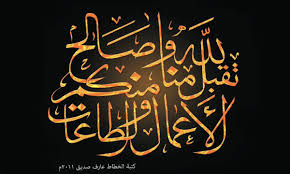 تقبل الله منا ومنكم صالح
الأعمال والطاعات
كتبة الخطاط عارف صديق ٢٠١١م